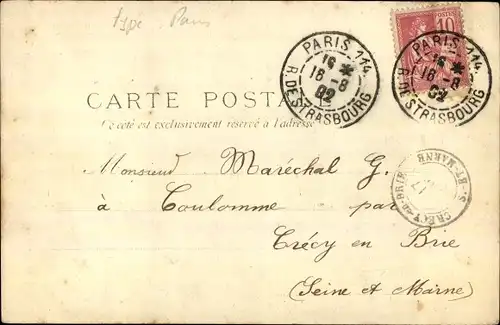 type Paris
PARIS 114.
16 *
16 -8
02
R. DE STRASBOURG
PARIS 114.
16 *
16 -8
02
R. DE STRASBOURG
10
POSTES
CARTE POSTALE
Ce côté est exclusivement réservé à l'adresse
CRÉCY-EN-BRIE
S.-ET-MARNE
17
Monsieur Maréchal G.
à Coulomme par
Crécy en Brie
(Seine et Marne)